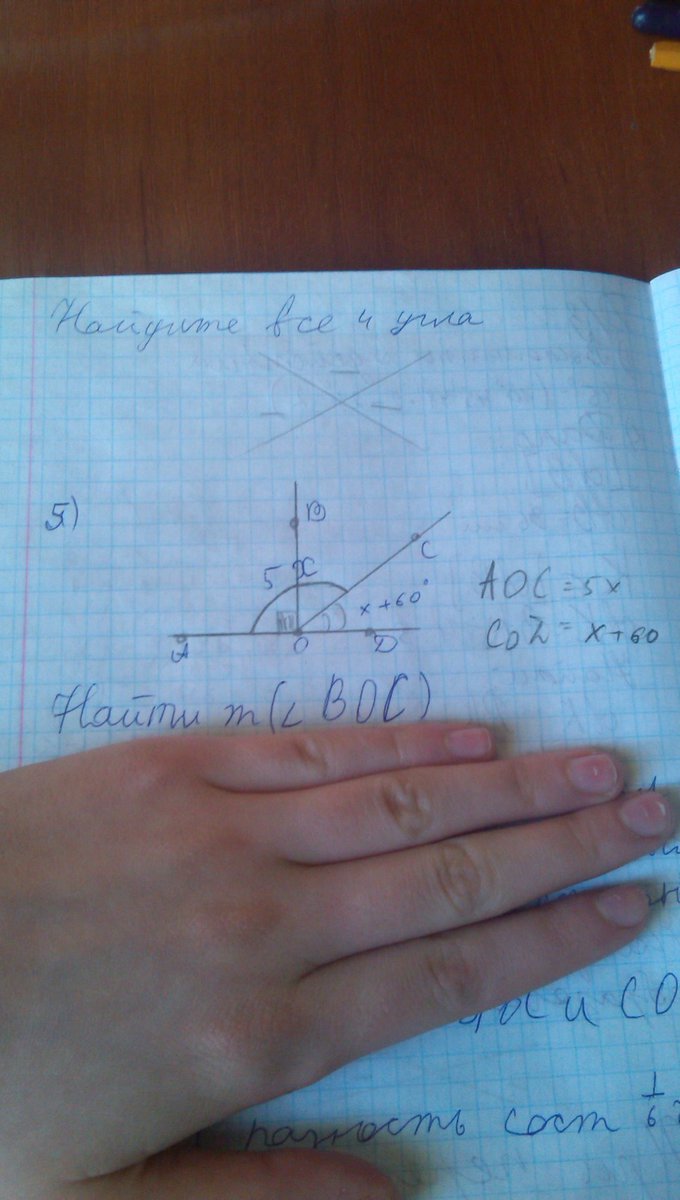 Найдите все 4 угла
5)
B
5x
C
x+60°
A
O
D
AOC = 5x
COD = x+60
Найти m(∠BOC)
и CO
разность сост 1/6